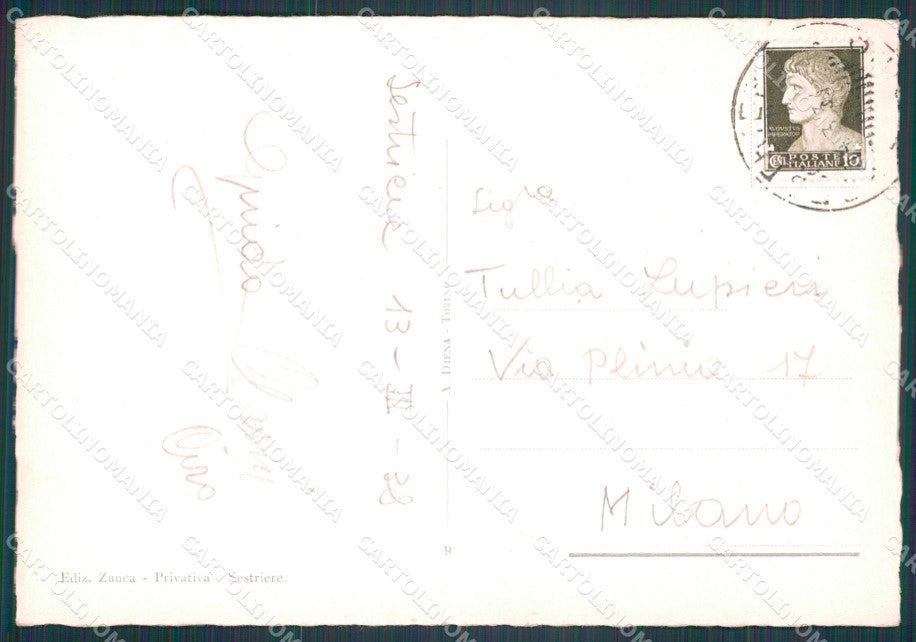 Sestriere 13 - III - 38
Sig.ra
Tullia Lupieri
Via Plinio 17
Milano
AVGVSTVS
IMPERATOR
CENT. POSTE ITALIANE 10
A DIENA - TORINO
9
Ediz. Zunca - Privativa - Sestriere.
CARTOLINOMANIA